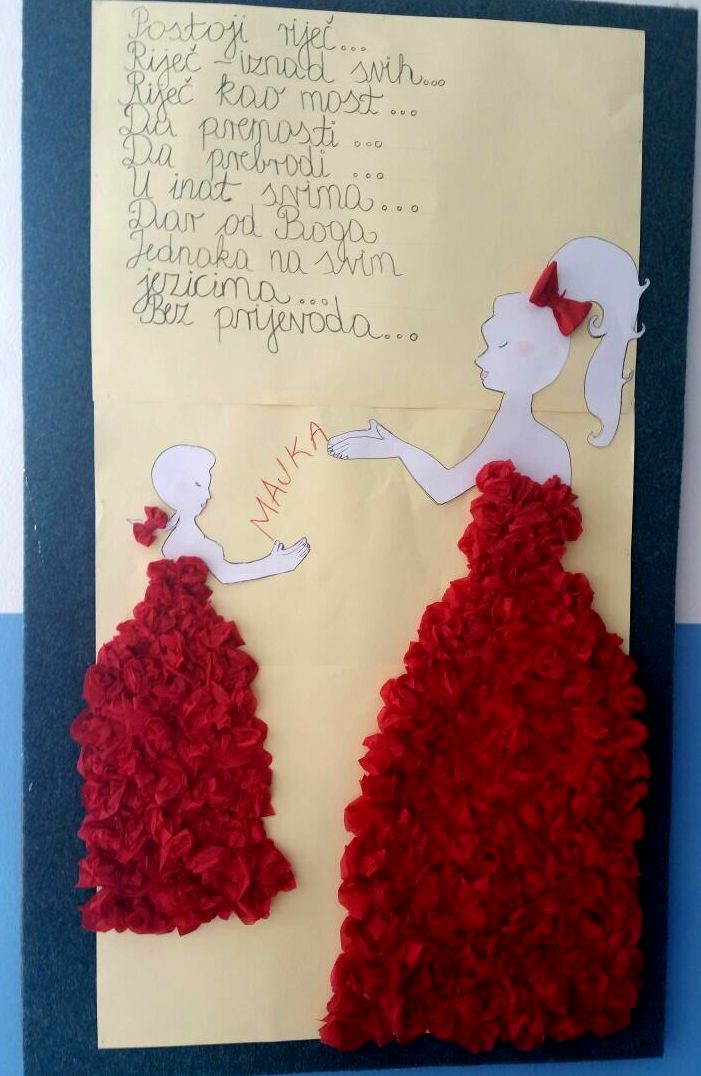 Postoji riječ...
Riječ - iznad svih...
Riječ kao most...
Da premosti...
Da prebrodi...
U inat svima...
Dar od Boga
Jednaka na svim
jezicima...
Bez prijevoda...
MAJKA